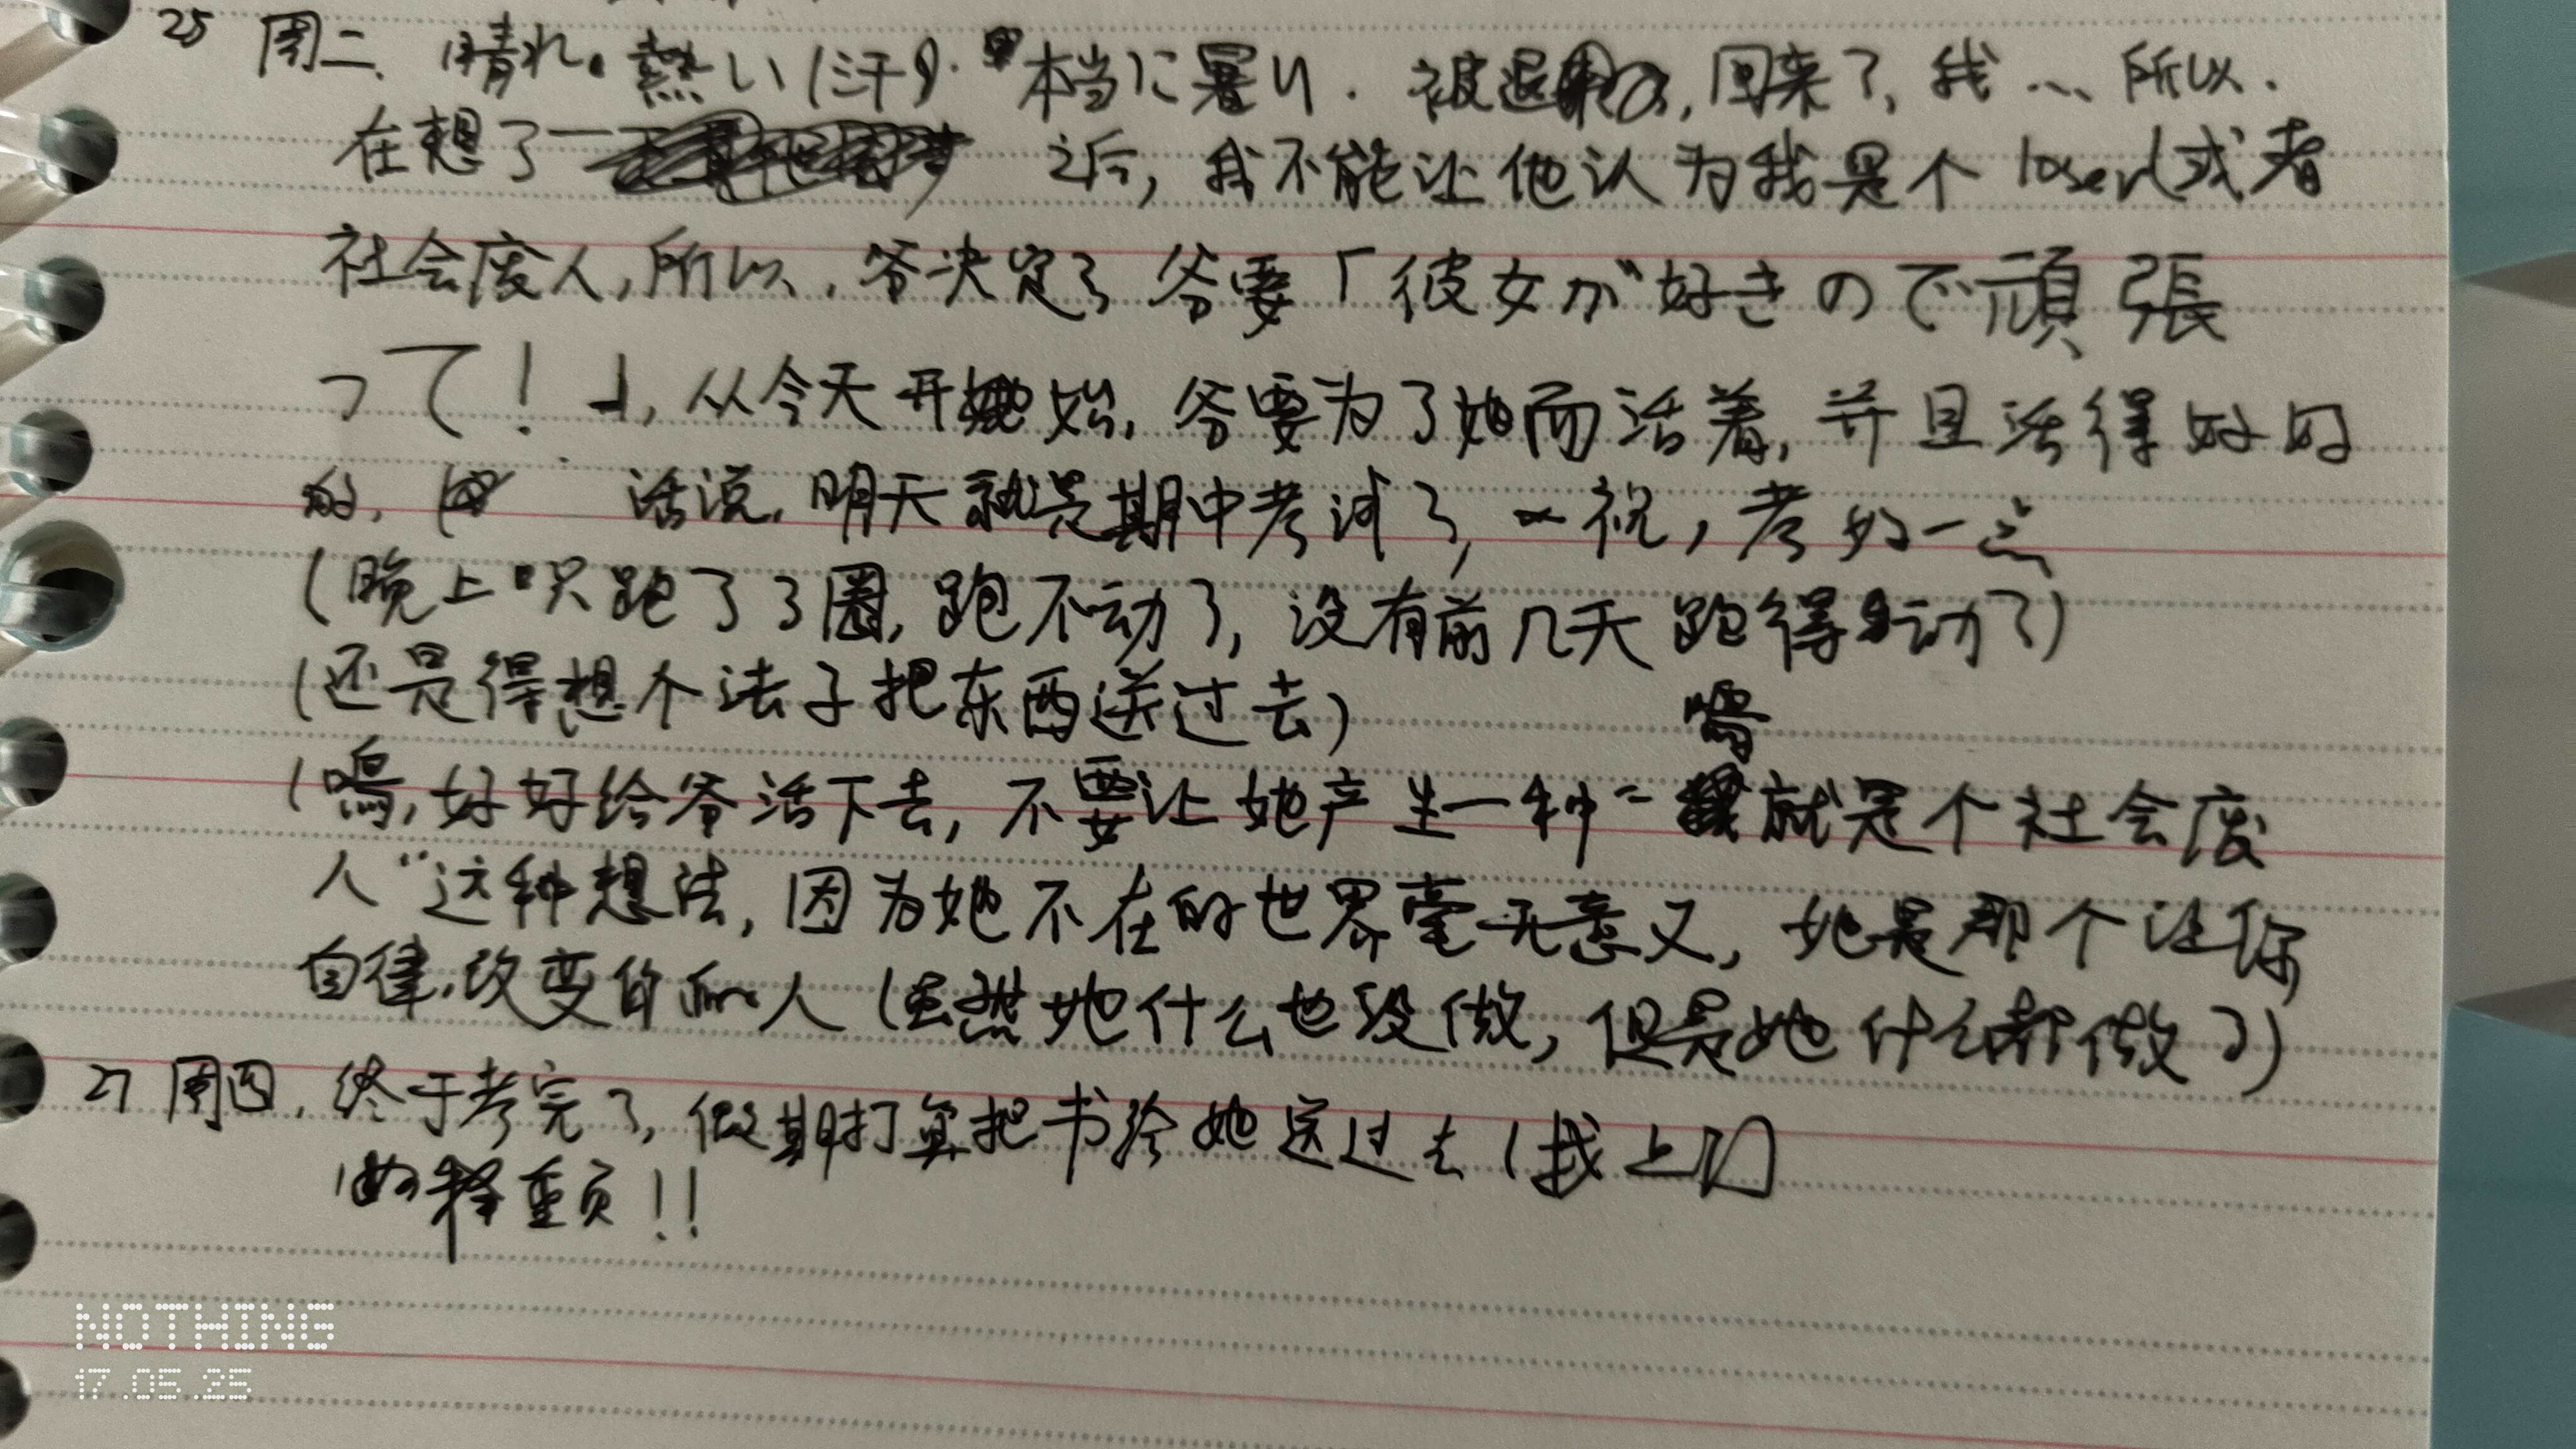 25 周二、晴れ。熱い(汗)。本当に暑い. 被退回来了,我... 所以.
在想了一 之后,我不能让他认为我是个loser(或者
社会废人,所以,爷决定了爷要「彼女が好きので頑張
って!」,从今天开始,爷要为了她而活着,并且活得好好
的, 话说,明天就是期中考试了,祝,考好一点
(晚上只跑了3圈,跑不动了,没有前几天跑得动了)
(还是得想个法子把东西送过去)
(鳴,好好给爷活下去,不要让她产生一种"鳴就是个社会废
人"这种想法,因为她不在的世界毫无意义,她是那个让你
自律,改变你的人(虽然她什么也没做,但是她什么都做了)
27 周四. 终于考完了,假期打算把书给她送过去(找上门
如释重负!!
NOTHING
17.05.25